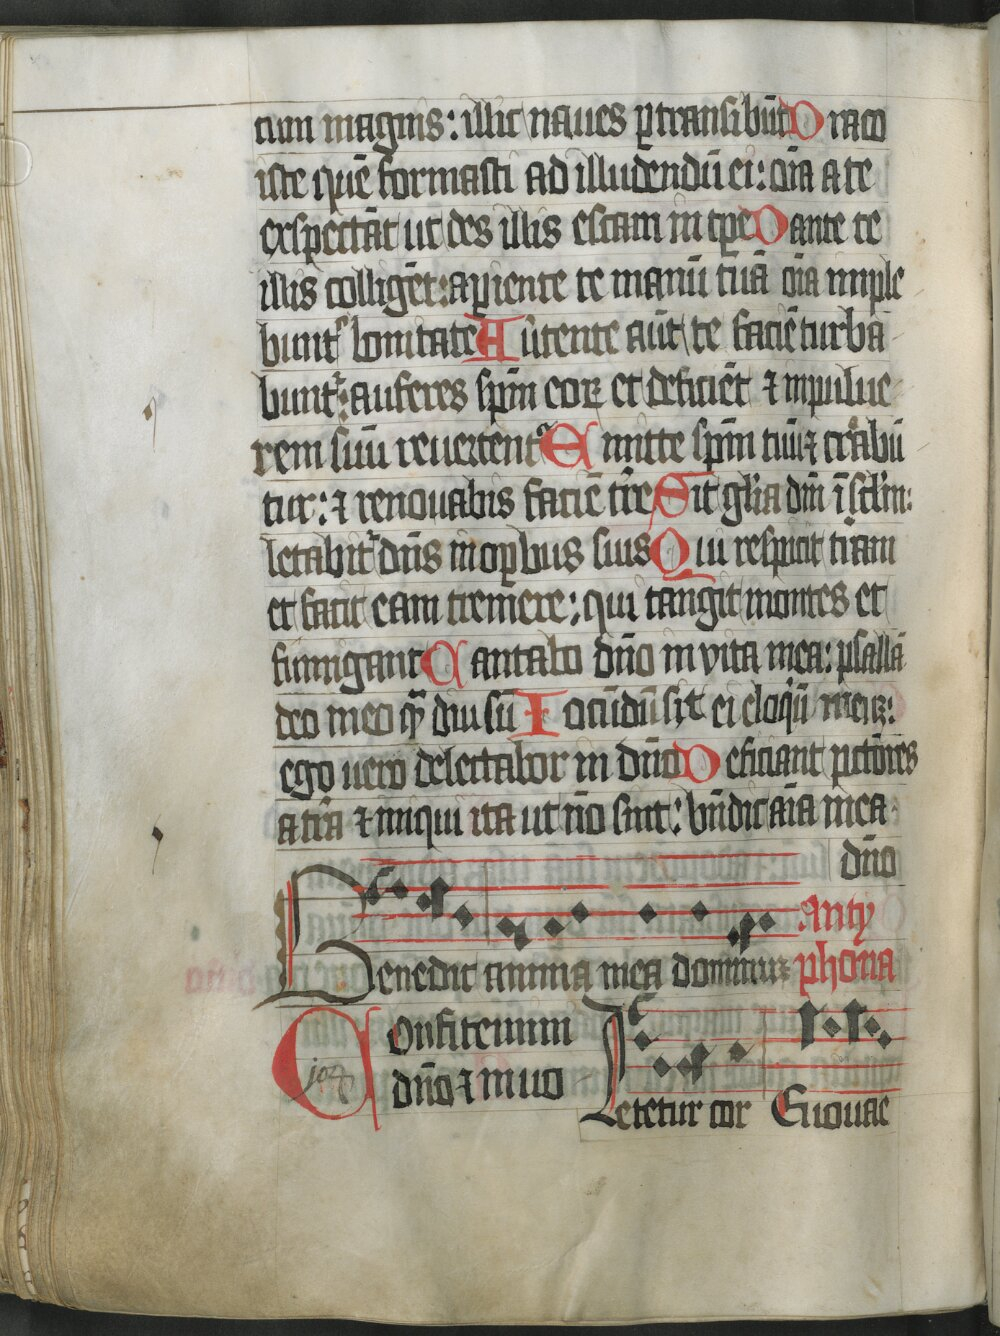 cum magnis: illic naues ꝑtransibūt Draco
iste quē formasti ad illudendū ei: oīa a te
exspectāt ut des illis escam in tꝑe Dante te
illis colligēt: aꝑiente te manū tuā oīa imple
buntᷣ bonitate Auertente aūt te faciē turba
buntᷣ: auferes spm̄ eoꝝ et deficiēt ⁊ in pulue
rem suū reuertentᷣ Emitte spm̄ tuū ⁊ creabū
tur: ⁊ renouabis faciē tr̄e Sit gl̄ia dn̄i ī sclm̄:
letabitᷣ dn̄s in oꝑibus suis Qui respicit tr̄am
et facit eam tremere: qui tangit montes et
fumigant Cantabo dn̄o in vita mea: psallā
deo meo qᷓdiu sū Iocūdū sit ei eloqͥū meū:
ego vero delectabor in dn̄o Deficiant pctōres
a tr̄a ⁊ iniqui ita ut nō sint: bn̄dic aīa mea
dn̄o
Benedic anima mea domino anty
phona
Confitemini Letetur cor Euouae
dn̄o ⁊ inuo